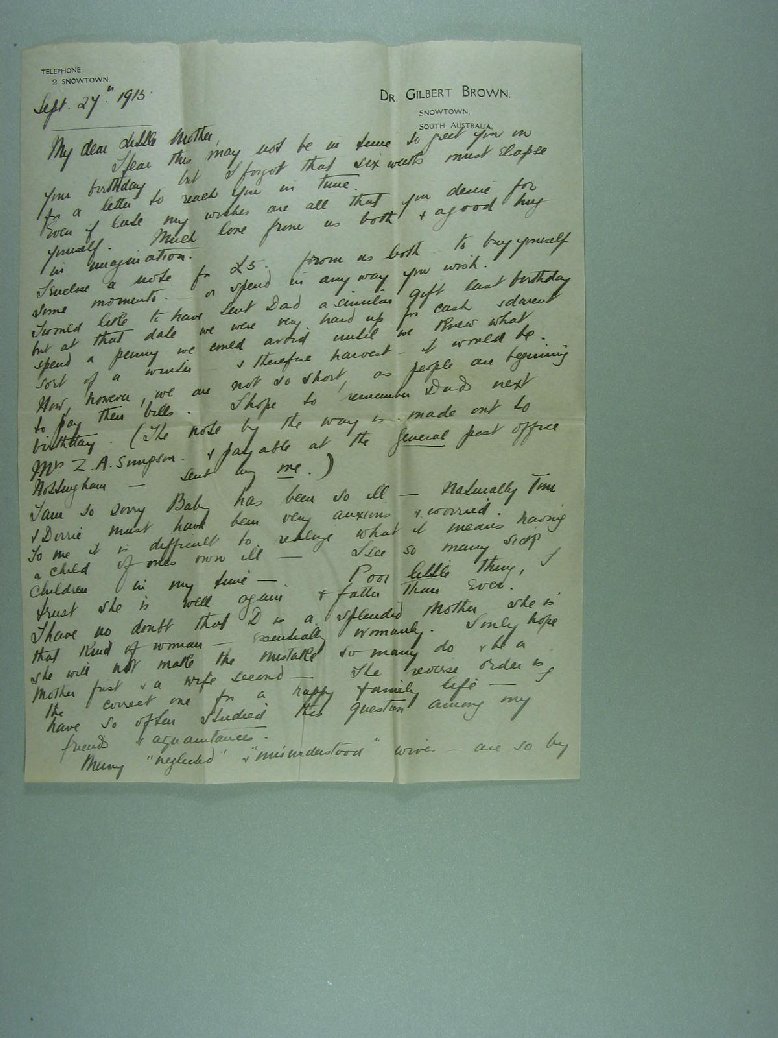 TELEPHONE
2 SNOWTOWN.
DR GILBERT BROWN.
SNOWTOWN,
SOUTH AUSTRALIA.
Sept. 27th 1915.
My dear little Mother,
I fear this may not be in time to greet you on
your birthday but I forgot that six weeks must elapse
for a letter to reach you in time.
Even if late my wishes are all that you desire for
yourself. Much love from us both & a good hug
in imagination.
I enclose a note for £5. from us both to buy yourself
some momento - or spend in any way you wish.
I would like to have sent Dad a similar gift last birthday
but at that date we were very hard up for cash & daren't
spend a penny we could avoid until we knew what
sort of a winter & therefore harvest it would be.
Now, however, we are not so short, as people are beginning
to pay their bills. I hope to remember Dad's next
birthday. (The note by the way is made out to
Mrs Z. A. Simpson & payable at the General post office
Nottingham — sent by me.)
I am so sorry Baby has been so ill — Naturally Tim
& Dorrie must have been very anxious & worried.
To me it is difficult to realize what it means having
a child of ones own ill — I see so many sick
children in my time —. Poor little thing, I
trust she is well again & fatter than ever.
I have no doubt that D is a splendid Mother she is
that kind of woman — essentially womanly. I only hope
she will not make the mistake so many do & be a
Mother first & a wife second — The reverse order is
the correct one for a happy family life — I
have so often studied this question among my
friends & aquaintances.
Many "neglected" & "misunderstood" wives are so by